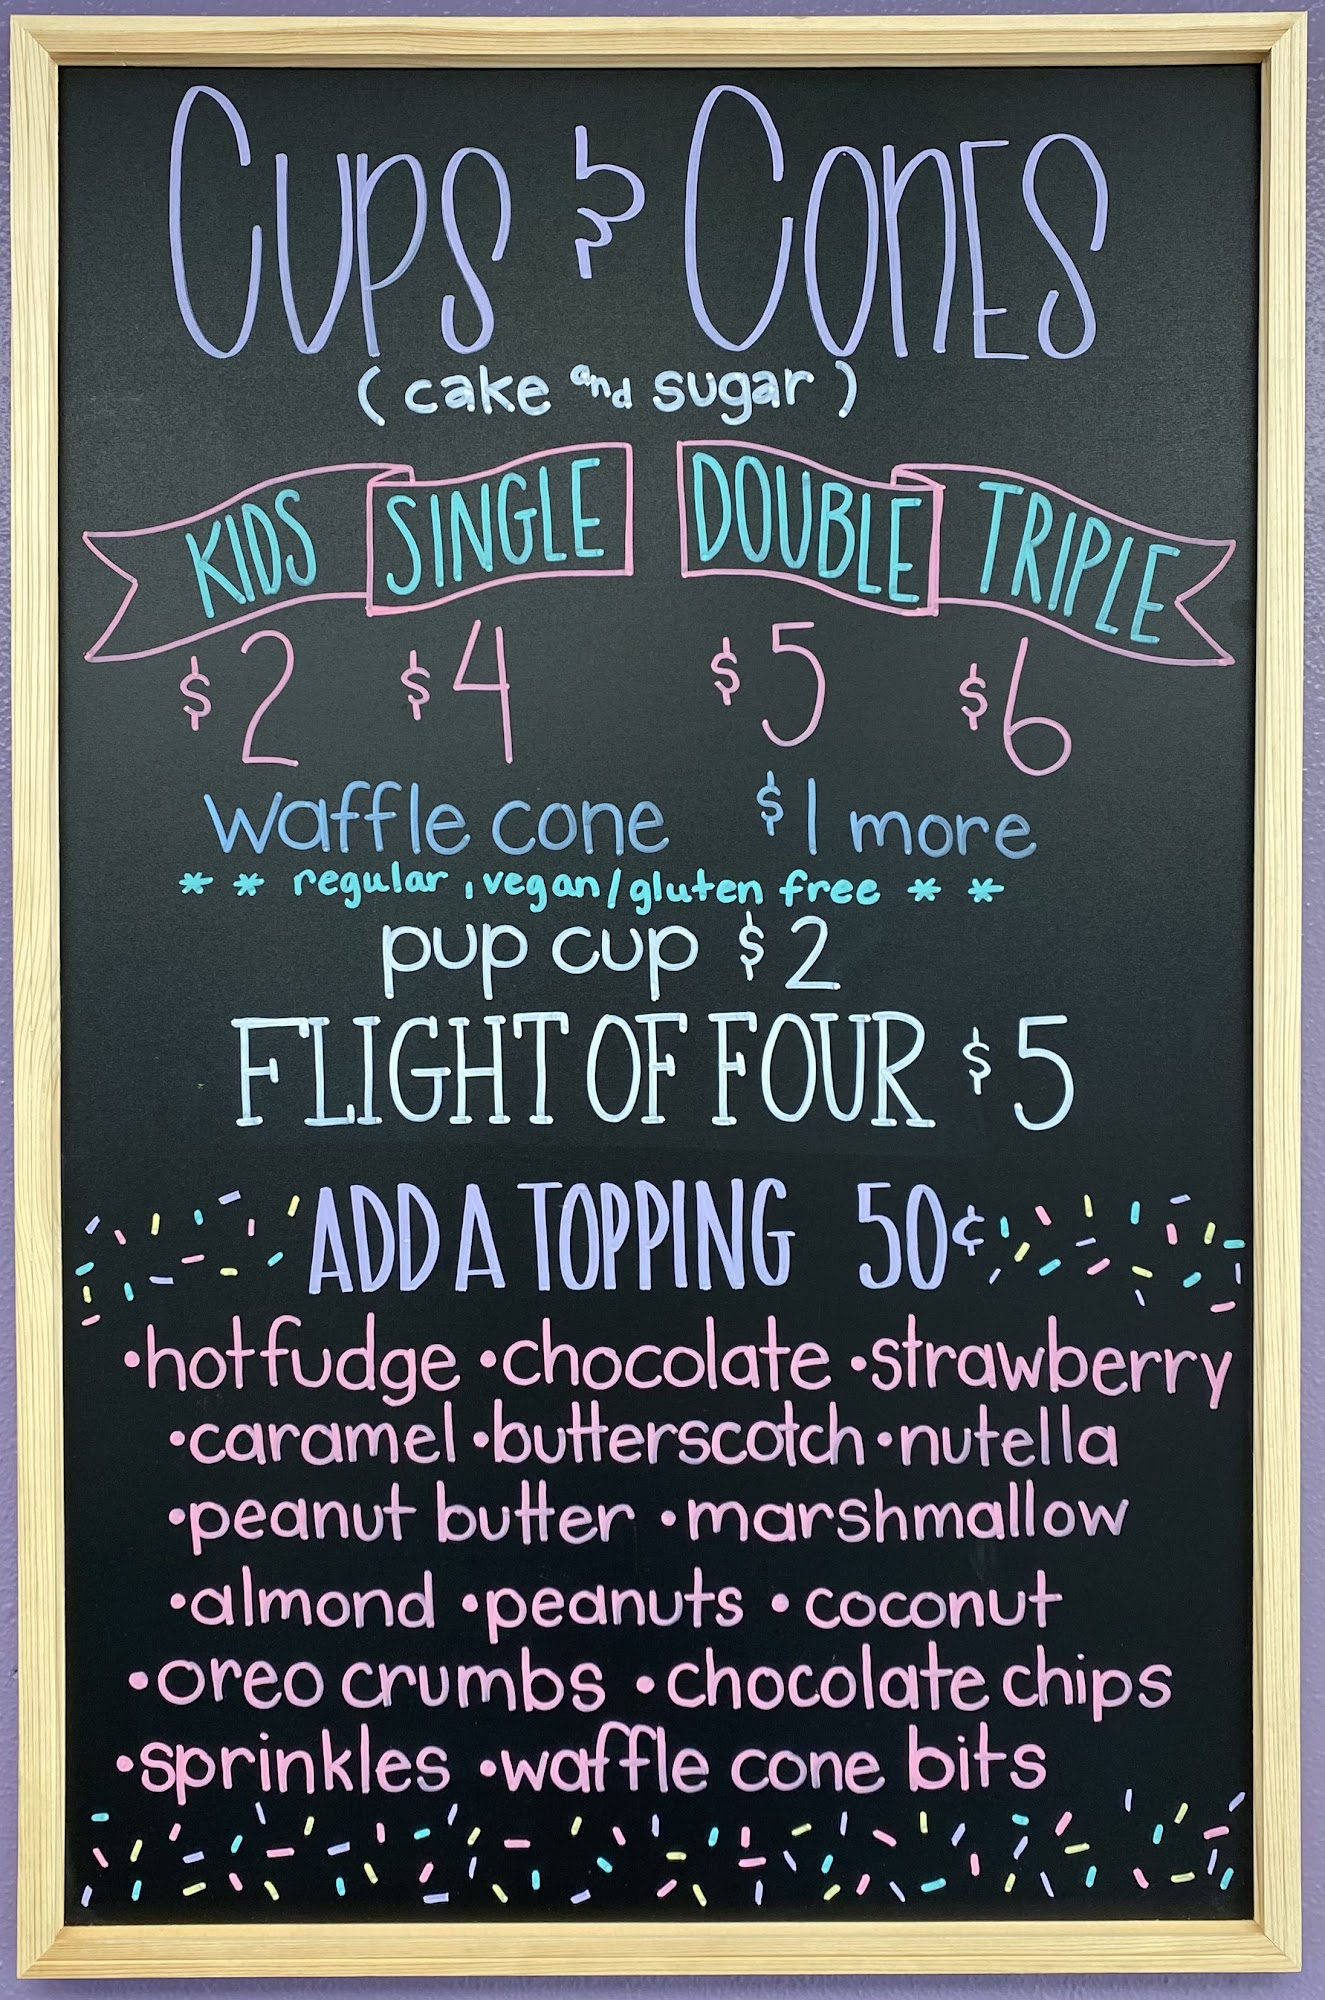 Cups & Cones
(cake and sugar)
KIDS SINGLE DOUBLE TRIPLE
$2 $4 $5 $6
waffle cone $1 more
** regular, vegan/gluten free **
pup cup $2
FLIGHT OF FOUR $5
ADD A TOPPING 50¢
•hot fudge •chocolate •strawberry
•caramel •butterscotch •nutella
•peanut butter •marshmallow
•almond •peanuts •coconut
•oreo crumbs •chocolate chips
•sprinkles •waffle cone bits